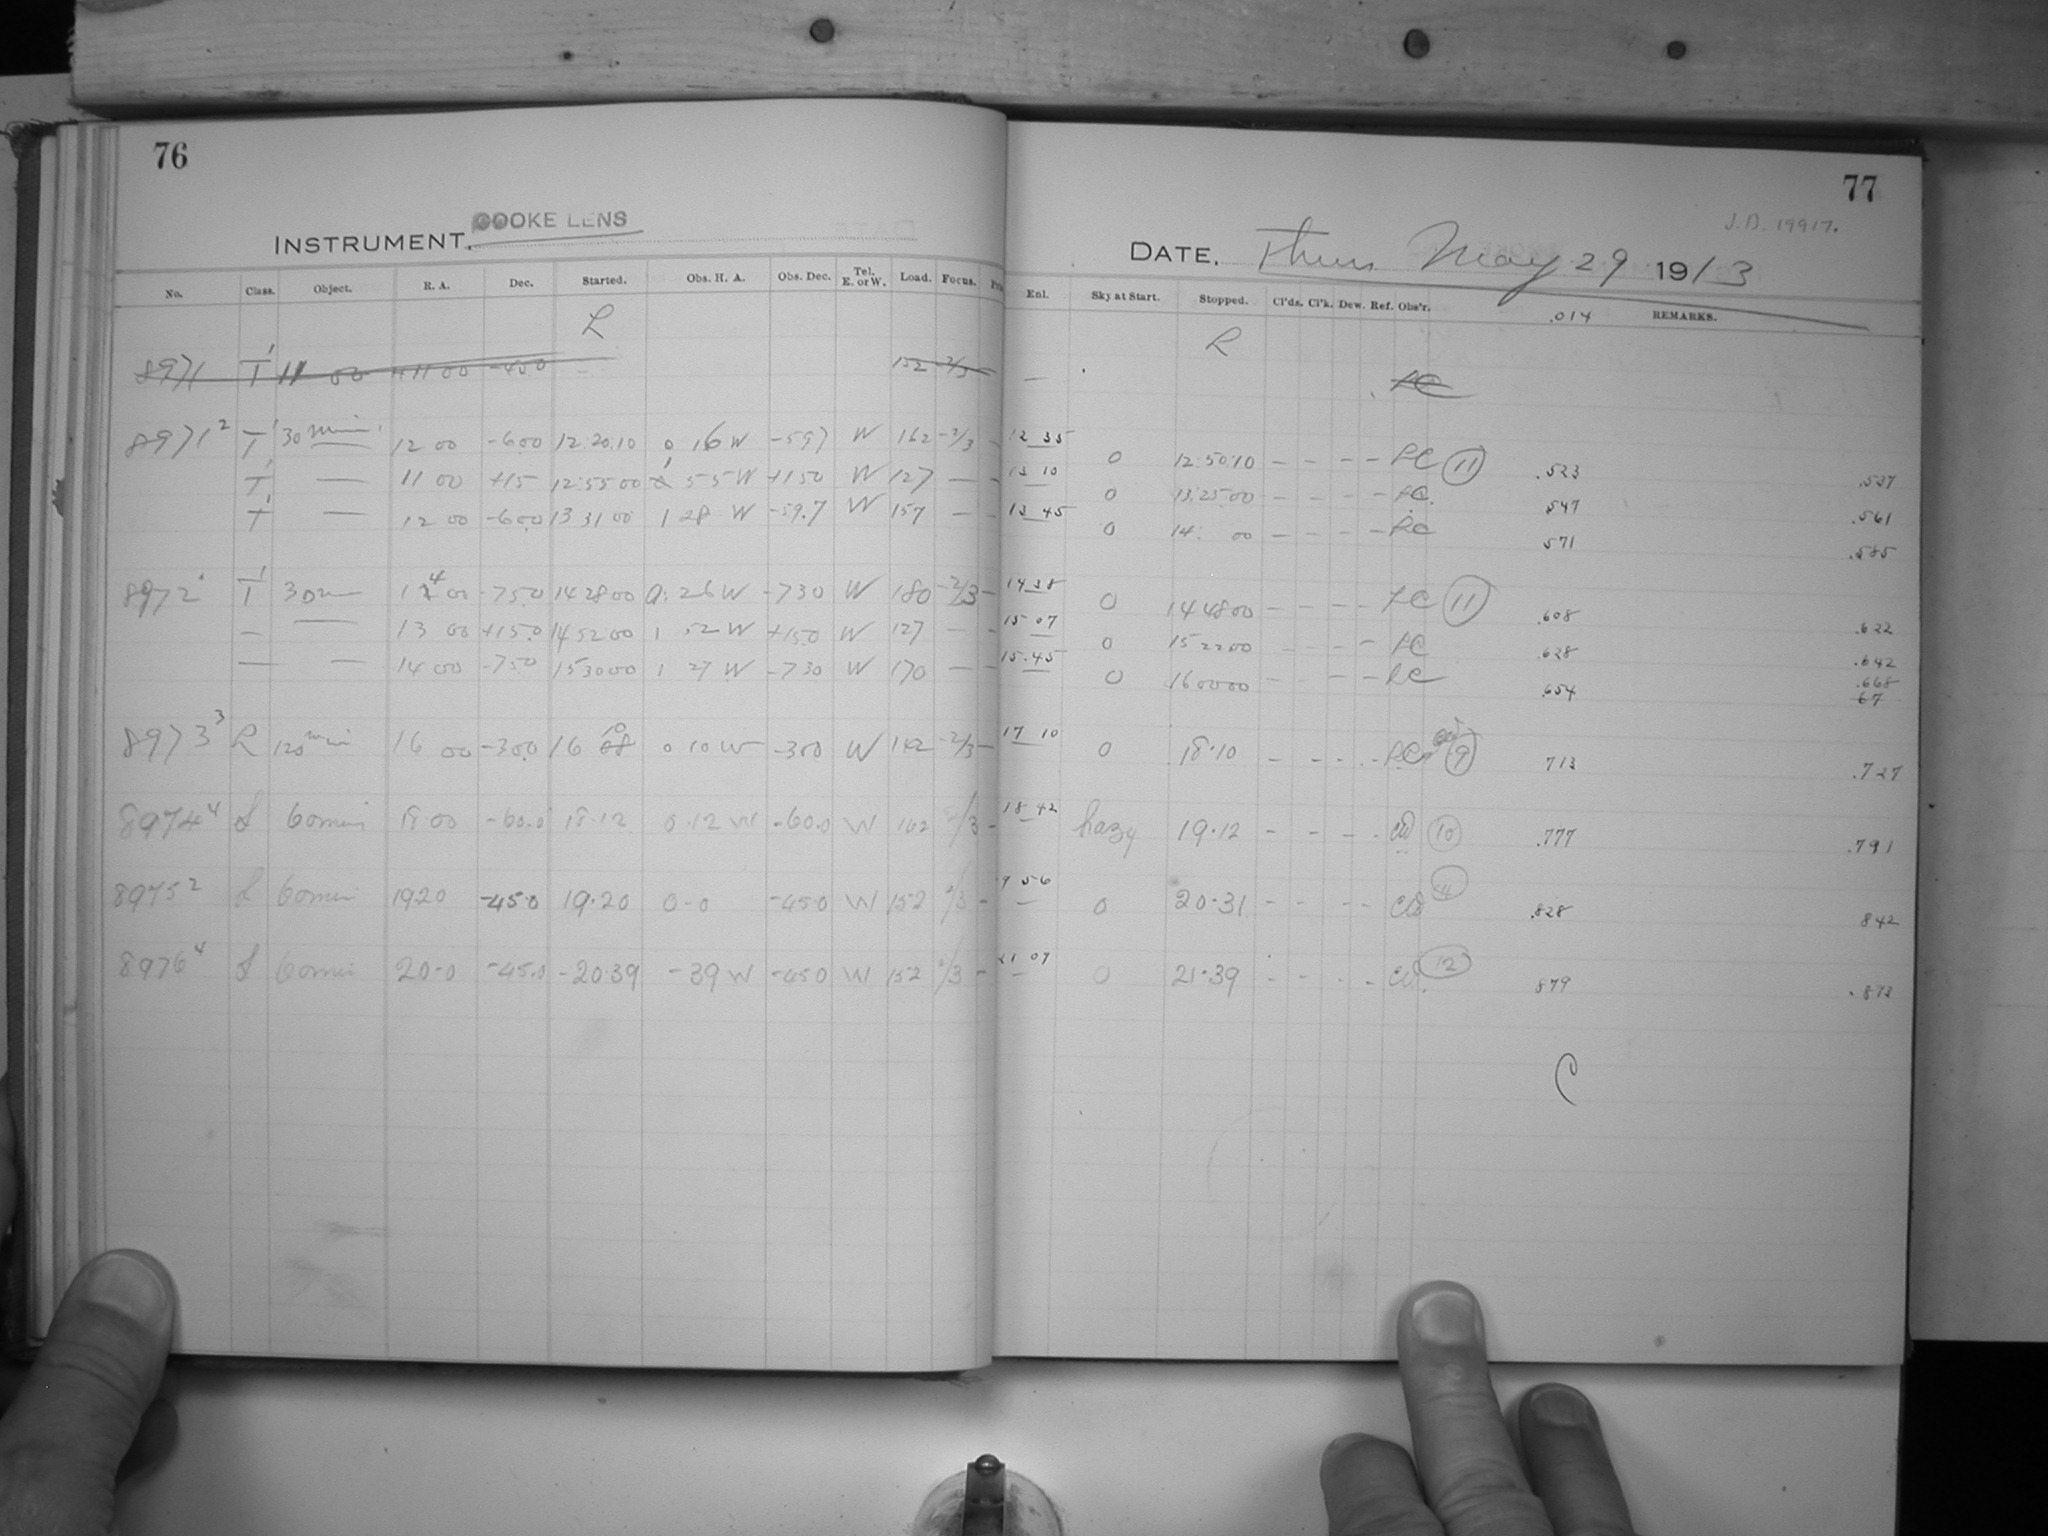 76
INSTRUMENT. COOKE LENS
No. Class. Object. R. A. Dec. Started. Obs. H. A. Obs. Dec. Tel. E. or W. Load. Focus.
R
8971 T' 11 00 -450 152 -2/3
8971² T' 30 min. 12 00 -600 12 20 10 0 16 W -597 W 162 -2/3 -
T' — 11 00 +15 12 55 00 1 55 W +150 W 127 — -
T' — 12 00 -600 13 31 00 1 28 W -59.7 W 157 — -
8972 T' 30m 14 00 -750 14 28 00 0. 26 W -730 W 180 -2/3 -
— — 13 00 +15.0 14 52 00 1 52 W +15.0 W 127 — -
— — 14 00 -750 15 30 00 1 27 W -730 W 170 — -
8973³ R 120 min 16 00 -300 16 10 0 10 W -300 W 142 -2/3 -
8974⁴ S 60 min 18.00 -60.0 18.12 0.12 W -60.0 W 162 2/3 -
8975² S 60 min 19.20 -45.0 19.20 0-0 -450 W 152 2/3 -
8976⁴ S 60 min 20-0 -45.0 -20 39 -39 W -450 W 152 2/3 -
77
J.D. 19917.
DATE. Thurs May 29 1913
Enl. Sky at Start. Stopped. Cl'ds. Cl'k. Dew. Ref. Obs'r. .014 REMARKS.
R
— LC
12 35 0 12 50 10 - - - - LC 11 .523 .537
13 10 0 13 25 00 - - - - LC. .547 .561
13 45 0 14 00 - - - - LC 571 .585
14 38 0 14 48 00 - - - - LC 11 .608 .622
15 07 0 15 22 00 - LC .628 .642
15.45 0 16 00 00 - - - LC .654 .668
67
17 10 0 18.10 - - - - LC 9 713 .727
18 42 hazy 19.12 - - - - CD 10 .777 .791
9 56 0 20.31 - - - - CD .828 842
21 09 0 21.39 - - - - CD 12 879 .893
C